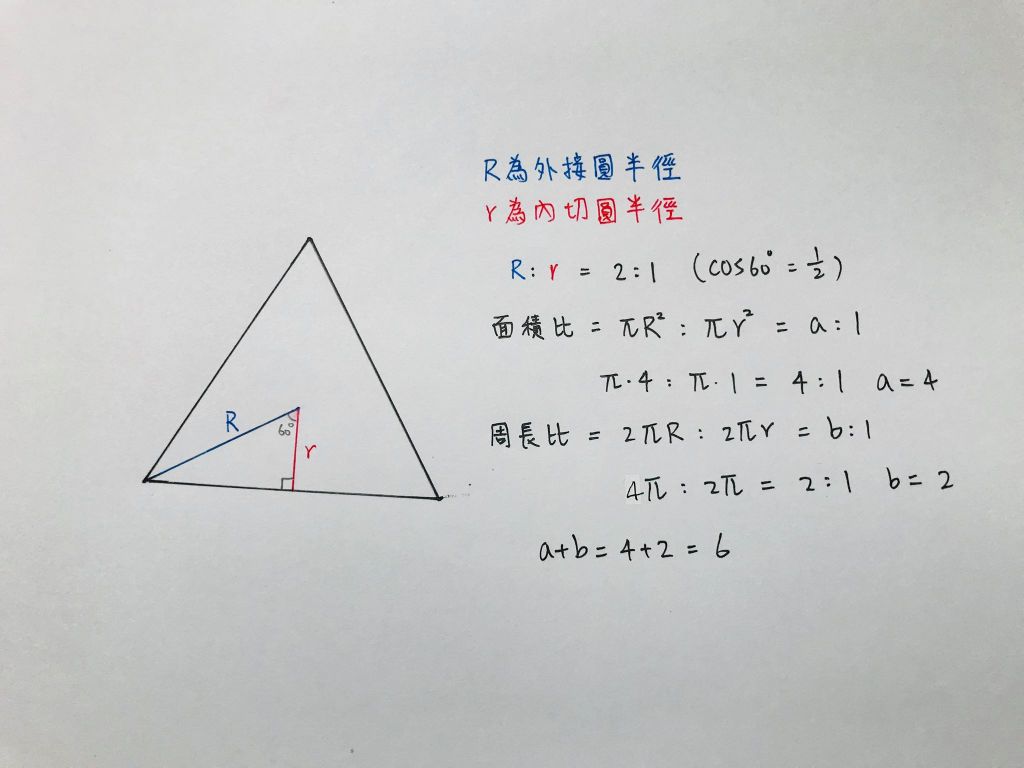 R為外接圓半徑
r為內切圓半徑
R:r = 2:1 (cos60° = 1/2)
面積比 = πR² : πr² = a:1
π·4 : π·1 = 4:1 a=4
周長比 = 2πR : 2πr = b:1
4π : 2π = 2:1 b=2
a+b=4+2=6
R
60°
r